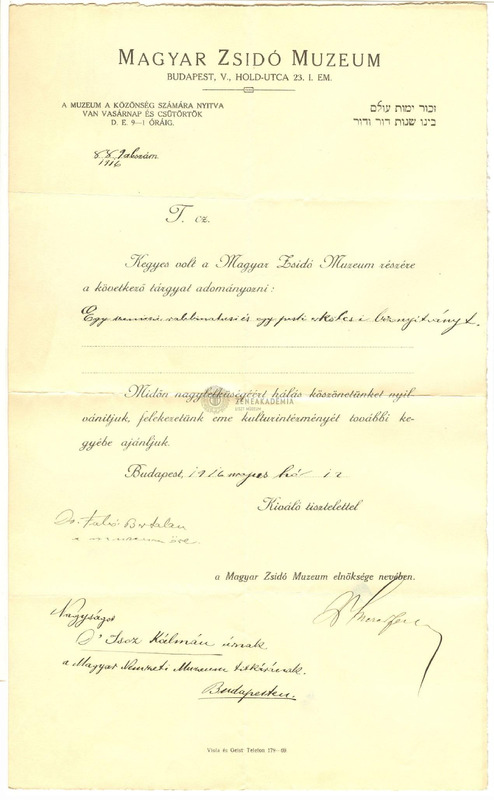 MAGYAR ZSIDÓ MUZEUM
BUDAPEST, V., HOLD-UTCA 23. I. EM.
A MUZEUM A KÖZÖNSÉG SZÁMÁRA NYITVA
VAN VASÁRNAP ÉS CSÜTÖRTÖK
D. E. 9—1 ÓRÁIG.
זכור ימות עולם
בינו שנות דור ודור
1916
T. cz.
Kegyes volt a Magyar Zsidó Muzeum részére
a következő tárgyat adományozni:
Egy rabbinatusi és egy pesti erkölcsi bizonyítványt.
Midőn nagylelküségéért hálás köszönetünket nyil-
vánitjuk, felekezetünk eme kulturintézményét további ke-
gyébe ajánljuk.
ZENEAKADÉMIA
LISZT MÚZEUM
Budapest, 1916 május hó 12
Kiváló tisztelettel
Dr. Fabó Bertalan
a muzeum őre
a Magyar Zsidó Muzeum elnöksége nevében.
Nagyságos
Dr Isoz Kálmán úrnak
a Magyar Nemzeti Muzeum titkárának.
Budapesten.
Viola és Geist Telefon 179—69